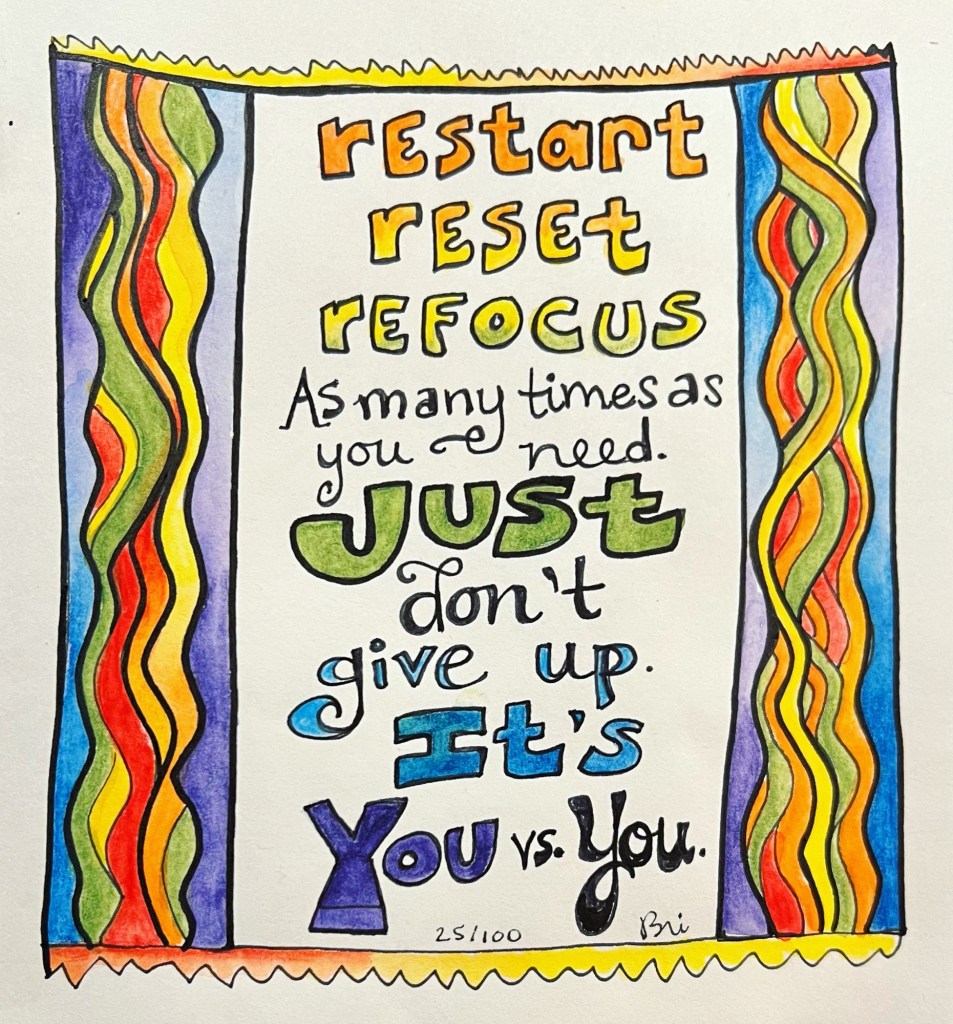 rEstart
rESEt
rEFOCUS
As many times as
you need.
Just
don't
give up.
It's
You vs. You.
25/100 Bri